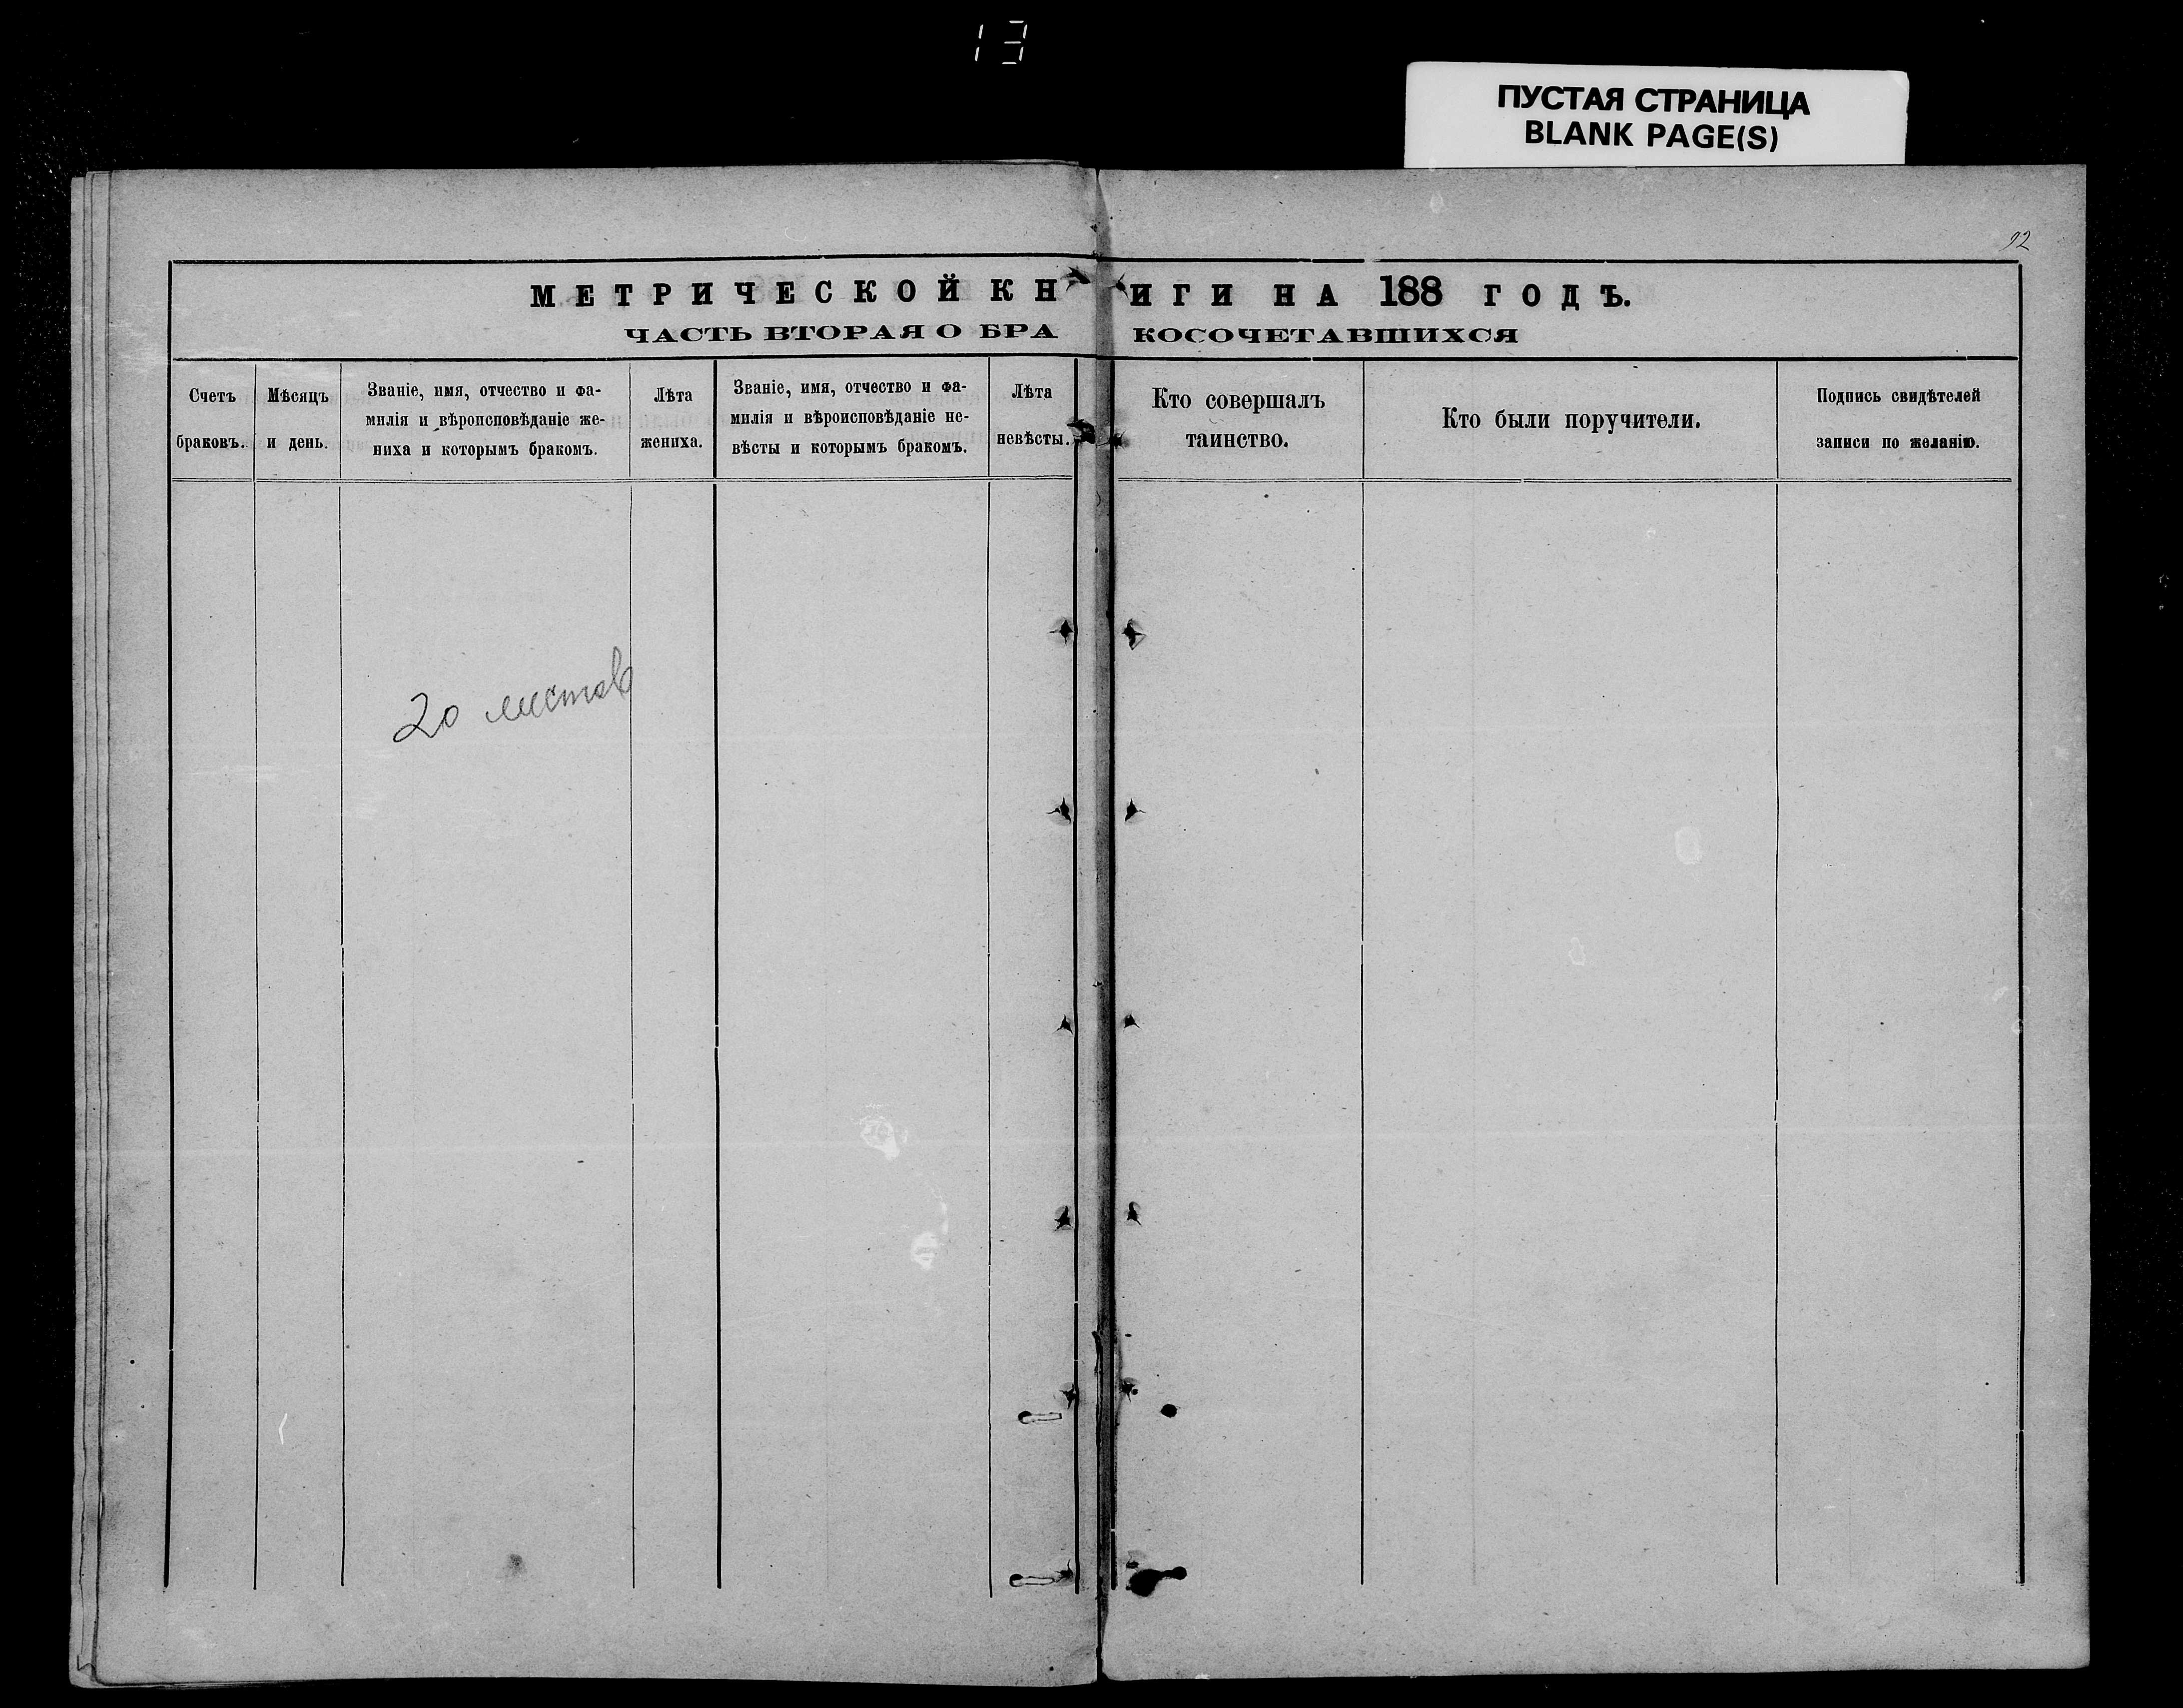 13
ПУСТАЯ СТРАНИЦА
BLANK PAGE(S)
92
МЕТРИЧЕСКОЙ КНИГИ НА 188 ГОДЪ.
ЧАСТЬ ВТОРАЯ О БРАКОСОЧЕТАВШИХСЯ
Счетъ
браковъ.
Мѣсяцъ
и день.
Званіе, имя, отчество и фа-
милія и вѣроисповѣданіе же-
ниха и которымъ бракомъ.
Лѣта
жениха.
Званіе, имя, отчество и фа-
милія и вѣроисповѣданіе не-
вѣсты и которымъ бракомъ.
Лѣта
невѣсты.
Кто совершалъ
таинство.
Кто были поручители.
Подпись свидѣтелей
записи по желанію.
20 листов